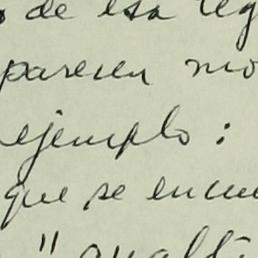 de esa reg
parecen mo
ejemplo:
que se encue
"